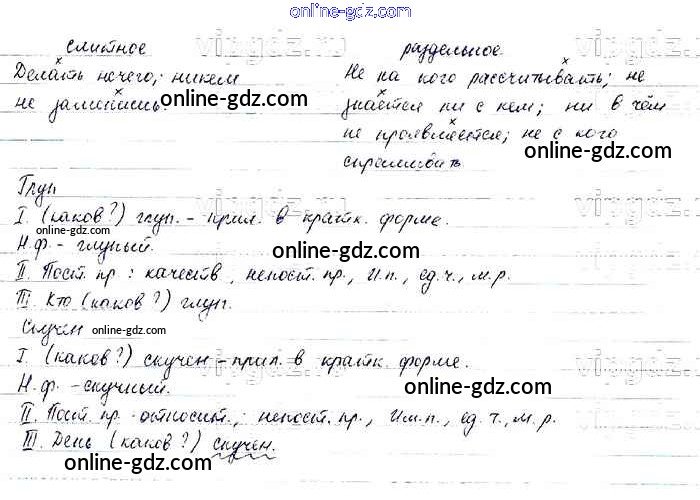 online-gdz.com
слитное раздельное
Делать нечего; никем Не на кого рассчитывать; не
не заменишь знается ни с кем; ни в чём
online-gdz.com
не проявляется; не с кого
online-gdz.com
спрашивать
Глуп
I. (каков?) глуп. - прил. в кратк. форме.
Н.ф. - глупый.
online-gdz.com
II. Пост. пр: качеств, непост. пр., И.п., ед.ч., м.р.
III. Кто (каков?) глуп.
Скучен online-gdz.com
I. (каков?) скучен - прил. в кратк. форме.
Н.ф. - скучный.
online-gdz.com
II. Пост. пр - относит.; непост. пр., Им.п., ед.ч., м.р.
III. День (каков?) скучен.
online-gdz.com
online-gdz.com
vipgdz.ru
vipgdz.ru